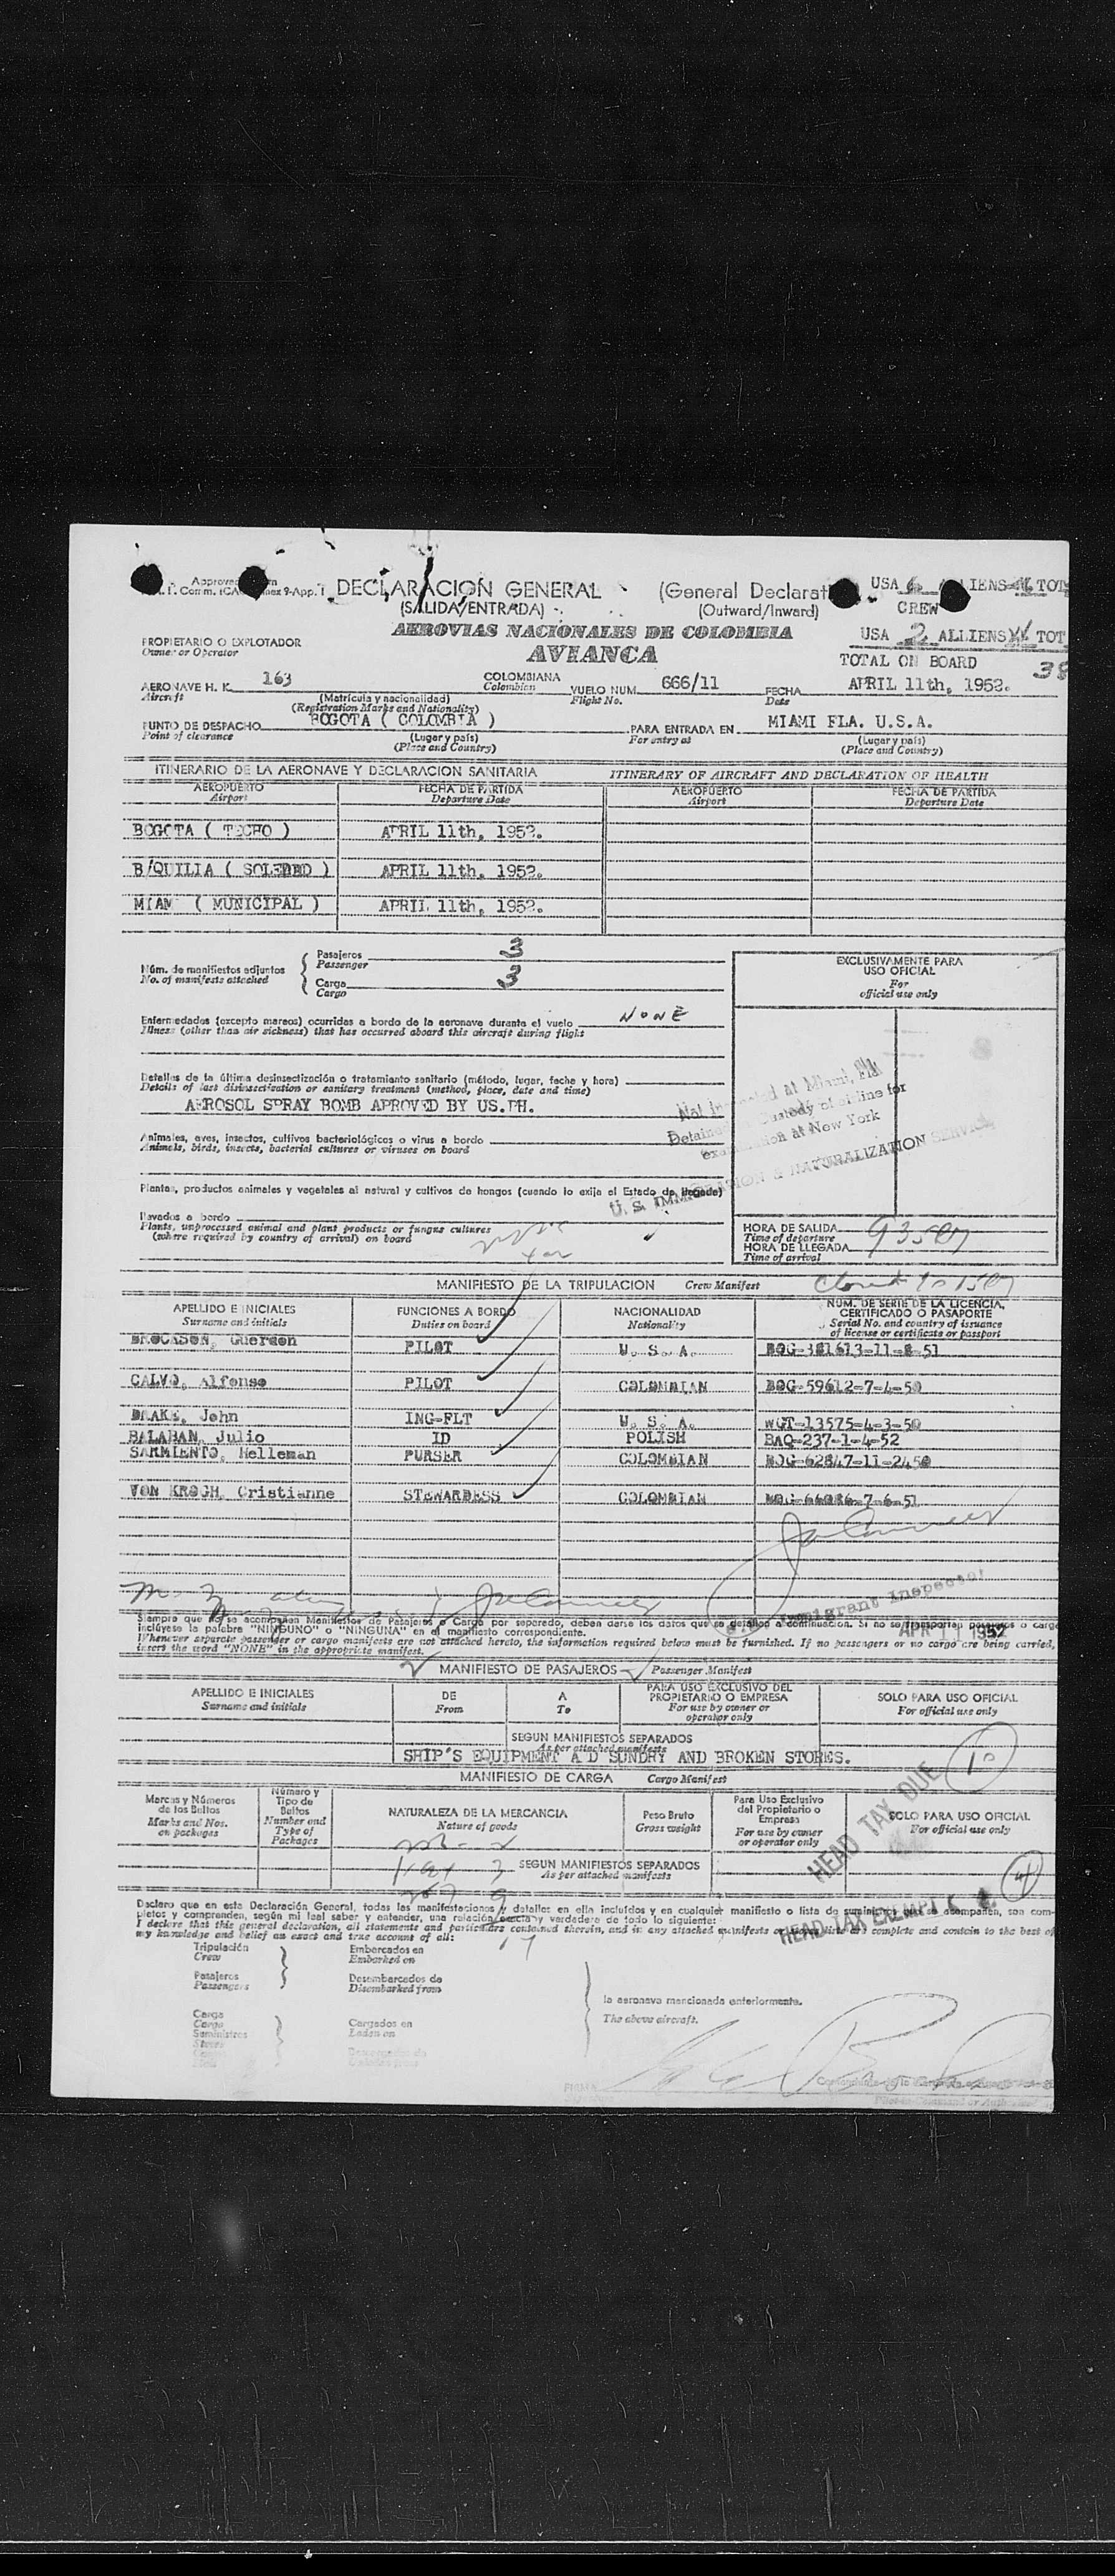 DECLARACION GENERAL (General Declarat
(SALIDA/ENTRADA) (Outward/Inward)
AEROVIAS NACIONALES DE COLOMBIA
AVIANCA
USA 6
CREW
USA 2 ALLIENS TOT
TOTAL ON BOARD 38
PROPIETARIO O EXPLOTADOR
Owner or Operator
AERONAVE H. K. 163 COLOMBIANA VUELO NUM. 666/11 FECHA APRIL 11th, 1952.
Aircraft Colombian Flight No. Date
(Matrícula y nacionalidad)
(Registration Marks and Nationality)
PUNTO DE DESPACHO BOGOTA ( COLOMBIA ) PARA ENTRADA EN MIAMI FLA. U.S.A.
Point of clearance (Lugar y país) For entry at (Lugar y país)
(Place and Country) (Place and Country)
ITINERARIO DE LA AERONAVE Y DECLARACION SANITARIA ITINERARY OF AIRCRAFT AND DECLARATION OF HEALTH
AEROPUERTO FECHA DE PARTIDA AEROPUERTO FECHA DE PARTIDA
Airport Departure Date Airport Departure Date
BOGOTA ( TECHO ) APRIL 11th, 1952.
B/QUILIA ( SOLEDED ) APRIL 11th, 1952.
MIAM ( MUNICIPAL ) APRIL 11th, 1952.
Núm. de manifiestos adjuntos Pasajeros 3
No. of manifests attached Passenger
Carga 3
Cargo
EXCLUSIVAMENTE PARA
USO OFICIAL
For
official use only
Enfermedades (excepto mareos) ocurridas a bordo de la aeronave durante el vuelo NONE
Illness (other than air sickness) that has occurred aboard this aircraft during flight
Detalles de la última desinsectización o tratamiento sanitario (método, lugar, fecha y hora)
Details of last disinsectisation or sanitary treatment (method, place, date and time)
AEROSOL SPRAY BOMB APROVED BY US.PH.
Custody of airline for
at New York
U. S. IMMIGRATION & NATURALIZATION SERVICE
Animales, aves, insectos, cultivos bacteriológicos o virus a bordo
Animals, birds, insects, bacterial cultures or viruses on board
Plantas, productos animales y vegetales al natural y cultivos de hongos (cuando lo exija el Estado de llegada)
llevados a bordo
Plants, unprocessed animal and plant products or fungus cultures
(where required by country of arrival) on board
HORA DE SALIDA
Time of departure
HORA DE LLEGADA
Time of arrival
MANIFIESTO DE LA TRIPULACION Crew Manifest
APELLIDO E INICIALES FUNCIONES A BORDO NACIONALIDAD NUM. DE SERIE DE LA LICENCIA,
CERTIFICADO O PASAPORTE
Surname and initials Duties on board Nationality Serial No. and country of issuance
of license or certificate or passport
PILOT U. S. A.
CALVO, Alfonso PILOT COLOMBIAN BOG-59612-7-4-50
DRAKE, John ING-FLT U. S. A. WGT-13575-4-3-50
BALABAN, Julio ID POLISH BAQ-237-1-4-52
SARMIENTO, Helleman PURSER COLOMBIAN BOG-62847-11-2450
VON KROGH, Cristianne STEWARDESS COLOMBIAN
Immigrant Inspector
APR 11 1952
Siempre que no se acompañen Manifiestos de Pasajeros o Carga por separado, deben darse los datos que se detallan a continuación. Si no se transportan pasajeros o carga
inclúyese la palabra "NINGUNO" o "NINGUNA" en el manifiesto correspondiente.
Whenever separate passenger or cargo manifests are not attached hereto, the information required below must be furnished. If no passengers or no cargo are being carried,
insert the word "NONE" in the appropriate manifest.
MANIFIESTO DE PASAJEROS Passenger Manifest
APELLIDO E INICIALES DE A PARA USO EXCLUSIVO DEL
PROPIETARIO O EMPRESA SOLO PARA USO OFICIAL
Surname and initials From To For use by owner or
operator only For official use only
SEGUN MANIFIESTOS SEPARADOS
As per attached manifests
SHIP'S EQUIPMENT A D SUNDRY AND BROKEN STORES.
MANIFIESTO DE CARGA Cargo Manifest
Marcas y Números
de los Bultos
Marks and Nos.
on packages
Número y
Tipo de
Bultos
Number and
Type of
Packages
NATURALEZA DE LA MERCANCIA
Nature of goods
Peso Bruto
Gross weight
Para Uso Exclusivo
del Propietario o
Empresa
For use by owner
or operator only
SOLO PARA USO OFICIAL
For official use only
SEGUN MANIFIESTOS SEPARADOS
As per attached manifests
HEAD TAX DUE 10
HEAD TAX EXEMPT 4
Declaro que en esta Declaración General, todas las manifestaciones y detalles en ella incluídos y en cualquier manifiesto o lista de suministros que se acompañen, son com-
pletos y comprenden, según mi leal saber y entender, una relación exacta y verdadera de todo lo siguiente:
I declare that this general declaration, all statements and particulars contained therein, and in any attached manifests are complete and contain to the best of
my knowledge and belief an exact and true account of all:
Tripulación Embarcados en
Crew Embarked on
Pasajeros Desembarcados de
Passengers Disembarked from
la aeronave mencionada anteriormente.
The above aircraft.
Carga
Cargo Cargados en
Suministros Laden on
Stores